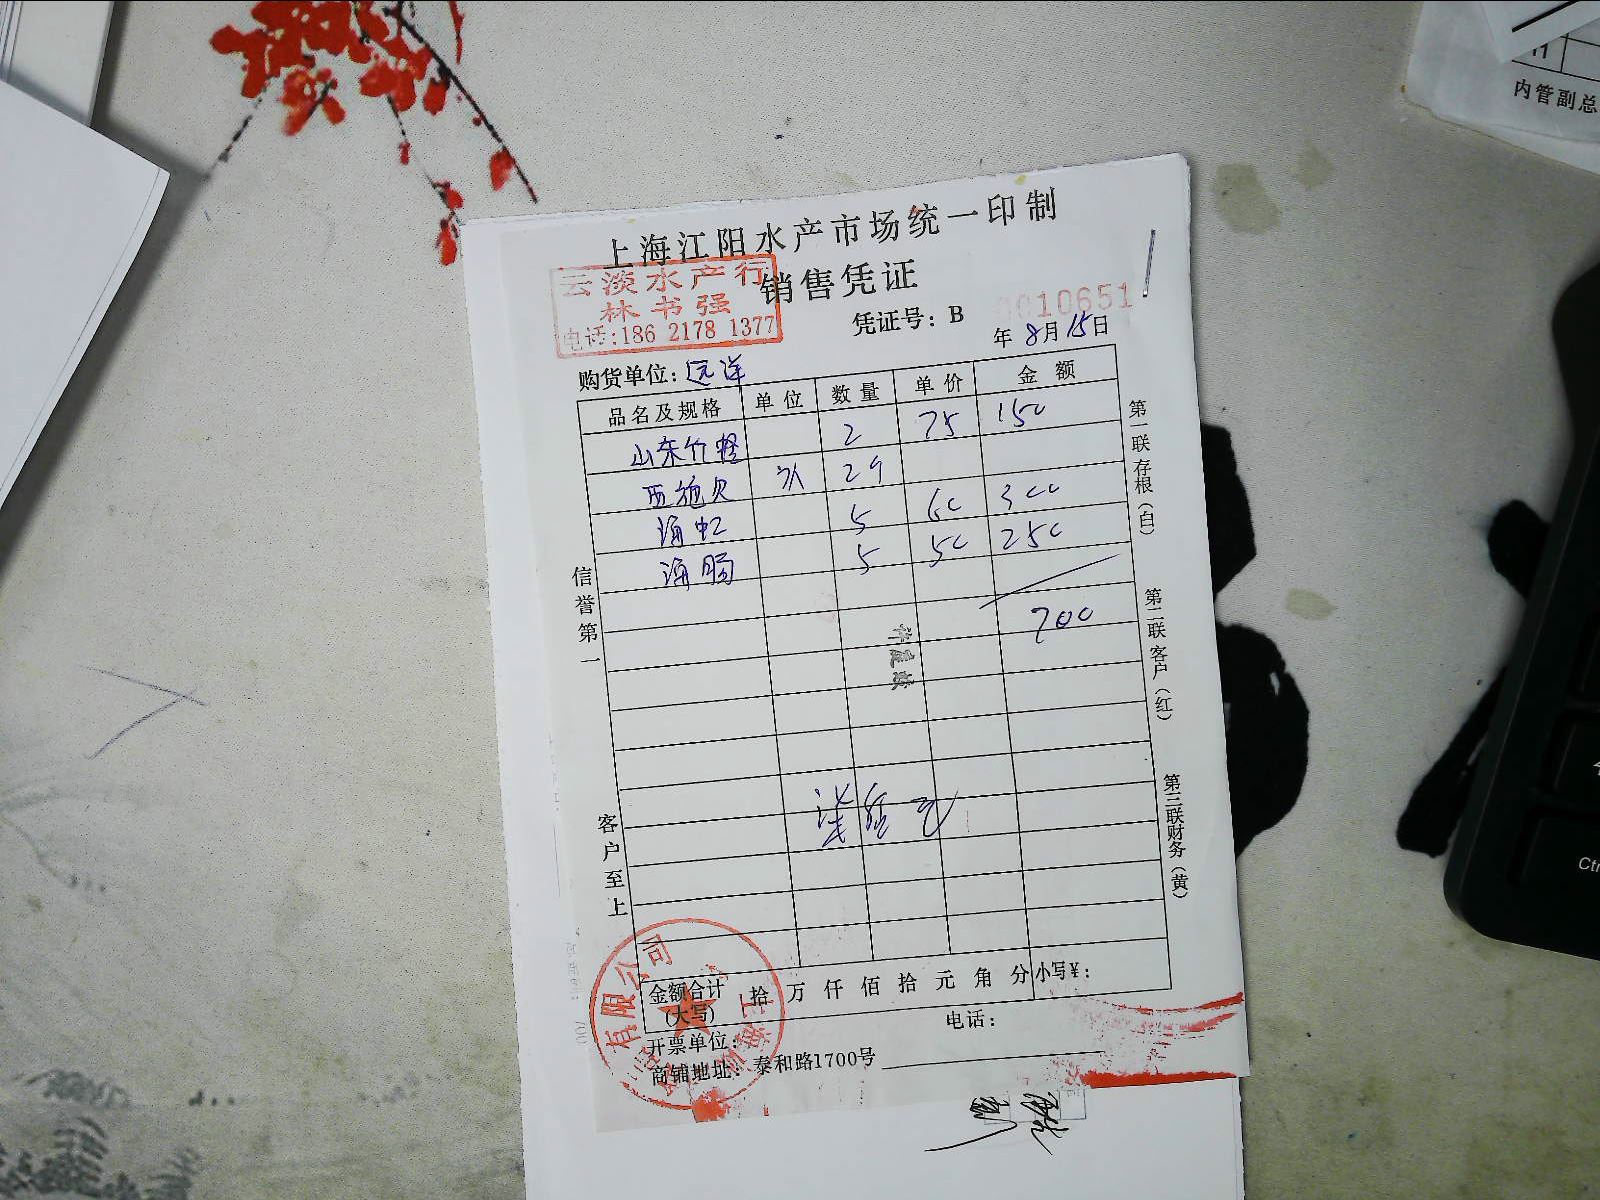 内管副总
上海江阳水产市场统一印制
销售凭证
云淡水产行
林书强
电话:186 2178 1377
凭证号：B 0010651
年 8月15日
购货单位：远洋
品名及规格 单位 数量 单价 金额
山东竹蛏 2 75 150
西施贝 29
海虹 5 60 300
海肠 5 50 250
700
信誉第一
客户至上
第一联存根（白）
第二联客户（红）
第三联财务（黄）
金额合计(大写) 拾 万 仟 佰 拾 元 角 分 小写¥：
开票单位：
电话：
商铺地址：泰和路1700号
有限公司
上海
Ctr